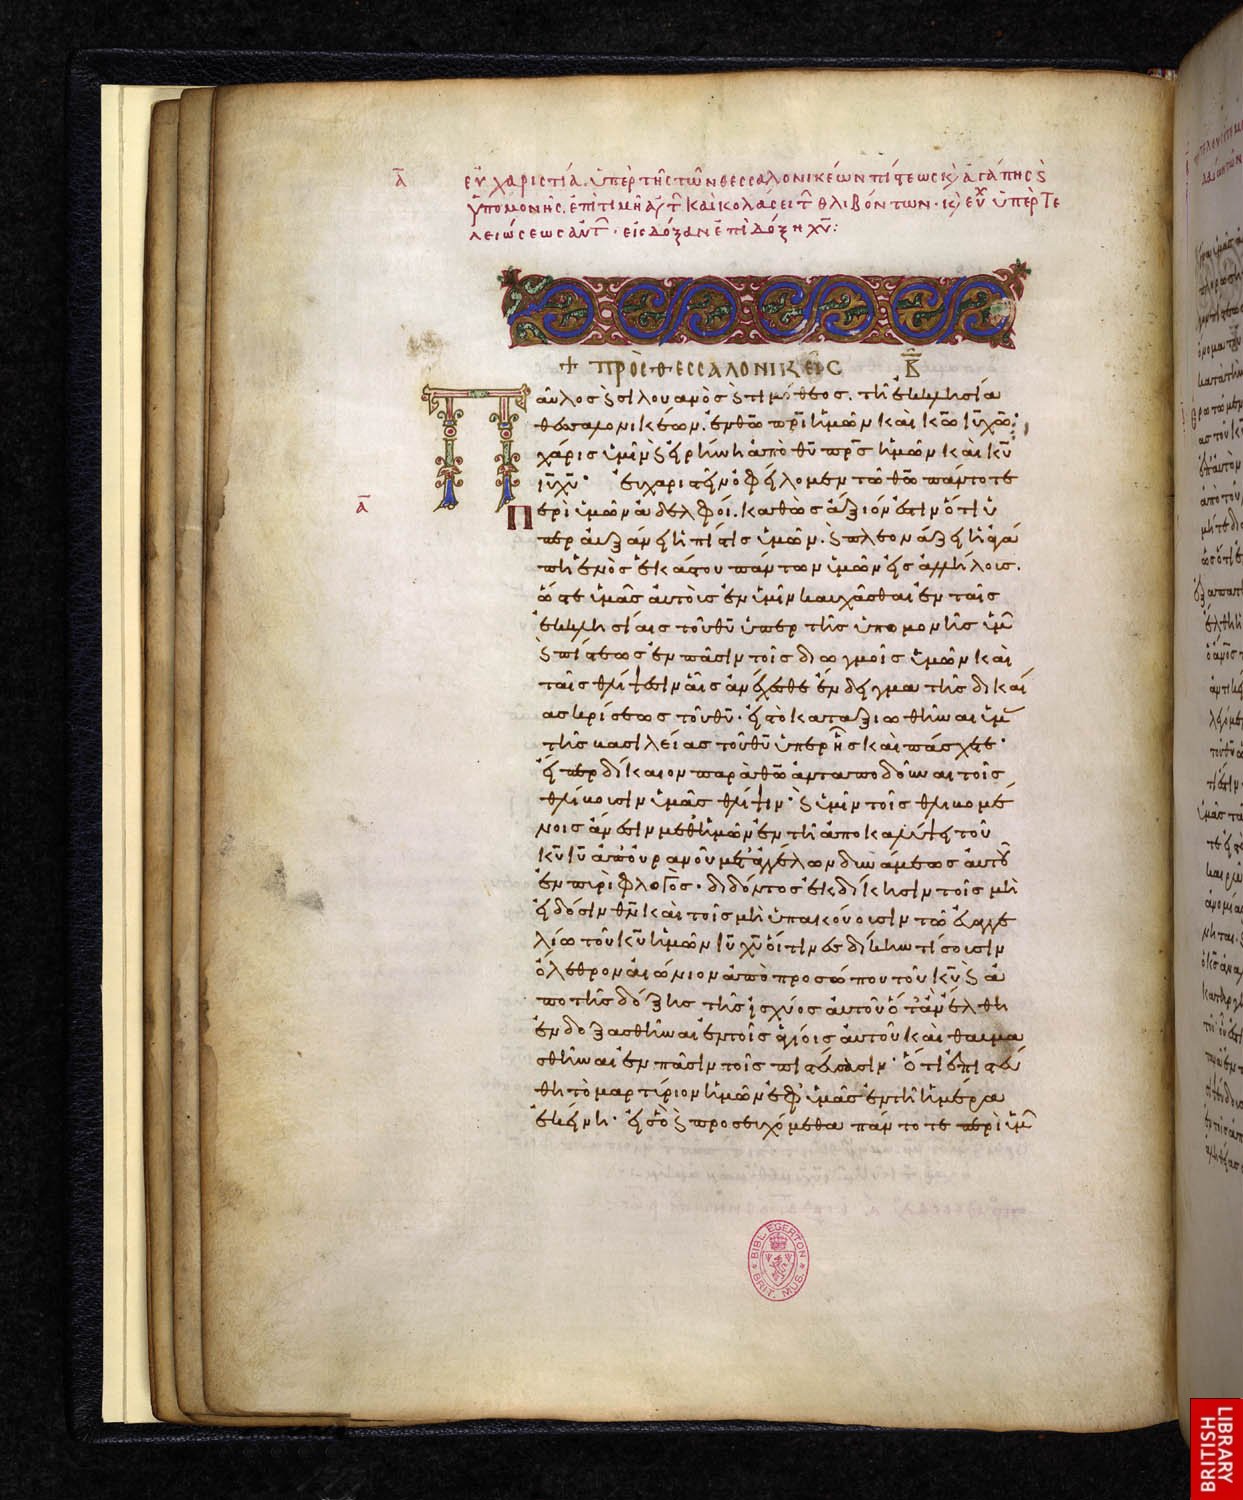 ᾱ εὐχαριστία ὑπὲρ τῆς τῶν θεσσαλονικέων πίστεως κ̀ ἀγάπης ϛ̀
ὑπομονῆς. ἐπιτιμὴ αυτ̑ καὶ κολάσει τ̑ θλιβόντων· κ̀ ευχ ὑπὲρ τε
λειώσεως αὐτ̑· εἰς δόξαν ἐπὶ δόξη χῡ:
+ πρὸς θεσσαλονικεῖς β̄
Παῦλος ϛ̀ σιλουανὸς ϛ̀ τιμόθεος. τῆ ἐκκλησία
θεσσαλονικέων. ἐν θῶ πρῑ ἡμῶν καὶ κῶ ῑῡ χῶ:
χάρις ὑμῖν ϛ̀ εἰρήνη ἀπὸ θῡ πρ̅ς ἡμῶν καὶ κῡ
ῑῡ χῡ· εὐχαριστεῖν ὀφείλομεν τῶ θῶ πάντοτε
ᾱ περὶ ὑμῶν ἀδελφοί. καθὼς ἄξιόν ἐστιν ὅτι ὑ
περαυξάνει ἡ πίστις ὑμῶν. ϛ̀ πλεονάζει ἡ ἀγά
πη ἑνὸς ἑκάστου πάντων ὑμῶν εἰς ἀλλήλοις.
ὥστε ἡμᾶς αὐτοὺς ἐν ὑμῖν καυχᾶσθαι ἐν ταῖς
ἐκκλησίαις τοῦ θῡ ὑπὲρ τῆς ὑπομονῆς ὑμ̑
ϛ̀ πίστεως ἐν πᾶσιν τοῖς διωγμοῖς ὑμῶν καὶ
ταῖς θλίψεσιν αἷς ἀνέχεσθε ἔνδειγμα τῆς δικαί
ας κρίσεως τοῦ θῡ· εἰς τὸ καταξιωθῆναι ὑμ̑
τῆς βασιλείας τοῦ θῡ ὑπὲρ ἧς καὶ πάσχετε·
εἴπερ δίκαιον παρὰ θῶ ἀνταποδοῦναι τοῖς
θλίβουσιν ὑμᾶς θλίψιν· ϛ̀ ὑμῖν τοῖς θλιβομέ
νοις ἄνεσιν μεθ ἡμῶν ἐν τῆ ἀποκαλύψει τοῦ
κῡ ῑῡ ἀπ οὐρανοῦ μετ ἀγγέλων δυνάμεως αὐτοῦ
ἐν πυρὶ φλογὸς· διδόντος ἐκδίκησιν τοῖς μὴ
εἰδόσιν θν̄ καὶ τοῖς μὴ ὑπακούουσιν τῶ εὐαγγε
λίω τοῦ κῡ ἡμῶν ῑῡ χῡ οἵτινες δίκην τίσουσιν
ὄλεθρον αἰώνιον ἀπὸ προσώπου τοῦ κῡ ϛ̀ ἀ
πὸ τῆς δόξης τῆς ἰσχύος αὐτοῦ ὅταν ἔλθη
ἐνδοξασθῆναι ἐν τοῖς ἁγίοις αὐτοῦ καὶ θαυμα
σθῆναι ἐν πᾶσιν τοῖς πιστεύσασιν· ὅτι ἐπιστεύ
θη τὸ μαρτύριον ἡμῶν ἐφ ὑμᾶς ἐν τῆ ἡμέρα
ἐκείνη· εἰς ὃ ϛ̀ προσευχόμεθα πάντοτε περὶ ὑμ̑
BIBL. EGERTON
BRIT. MUS.
BRITISH
LIBRARY